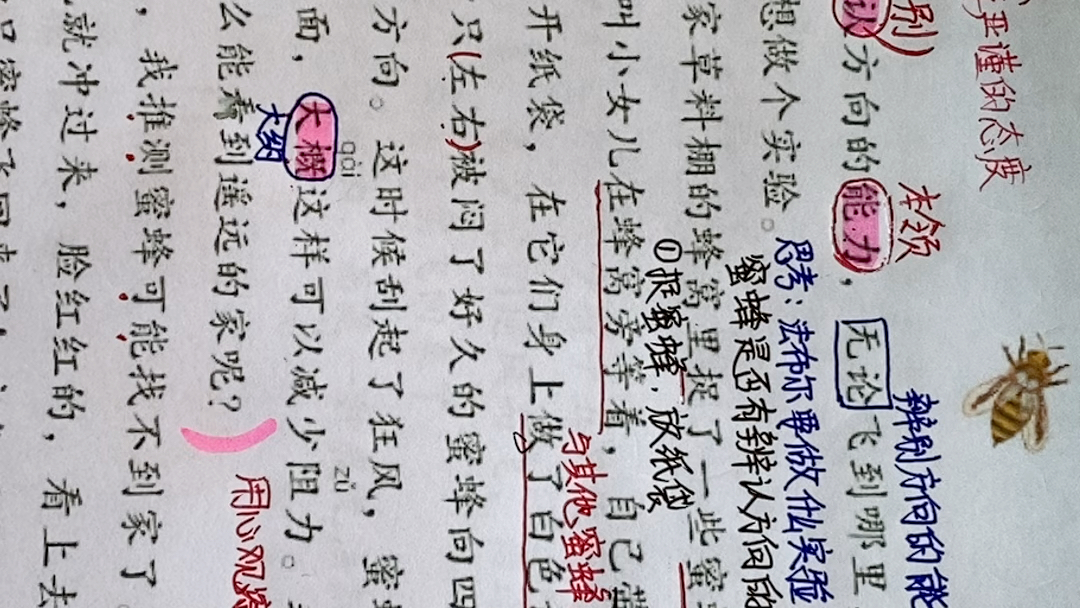 严谨的态度
别)
本领
辨别方向的能
认方向的能力，无论飞到哪里
思考：法布尔要做什么实验
想做个实验。
蜜蜂是否有辨认方向的
家草料棚的蜂窝里捉了一些蜜
①捉蜜蜂，放纸袋
叫小女儿在蜂窝旁等着，自己带
与其他蜜蜂
开纸袋，在它们身上做了白色
只(左右)被闷了好久的蜜蜂向四
方向。这时候刮起了狂风，蜜
gài
zǔ
面，大概这样可以减少阻力。
大约
么能看到遥远的家呢？
用心观察
，我推测蜜蜂可能找不到家了。
就冲过来，脸红红的，看上去
口蜜蜂飞回来了